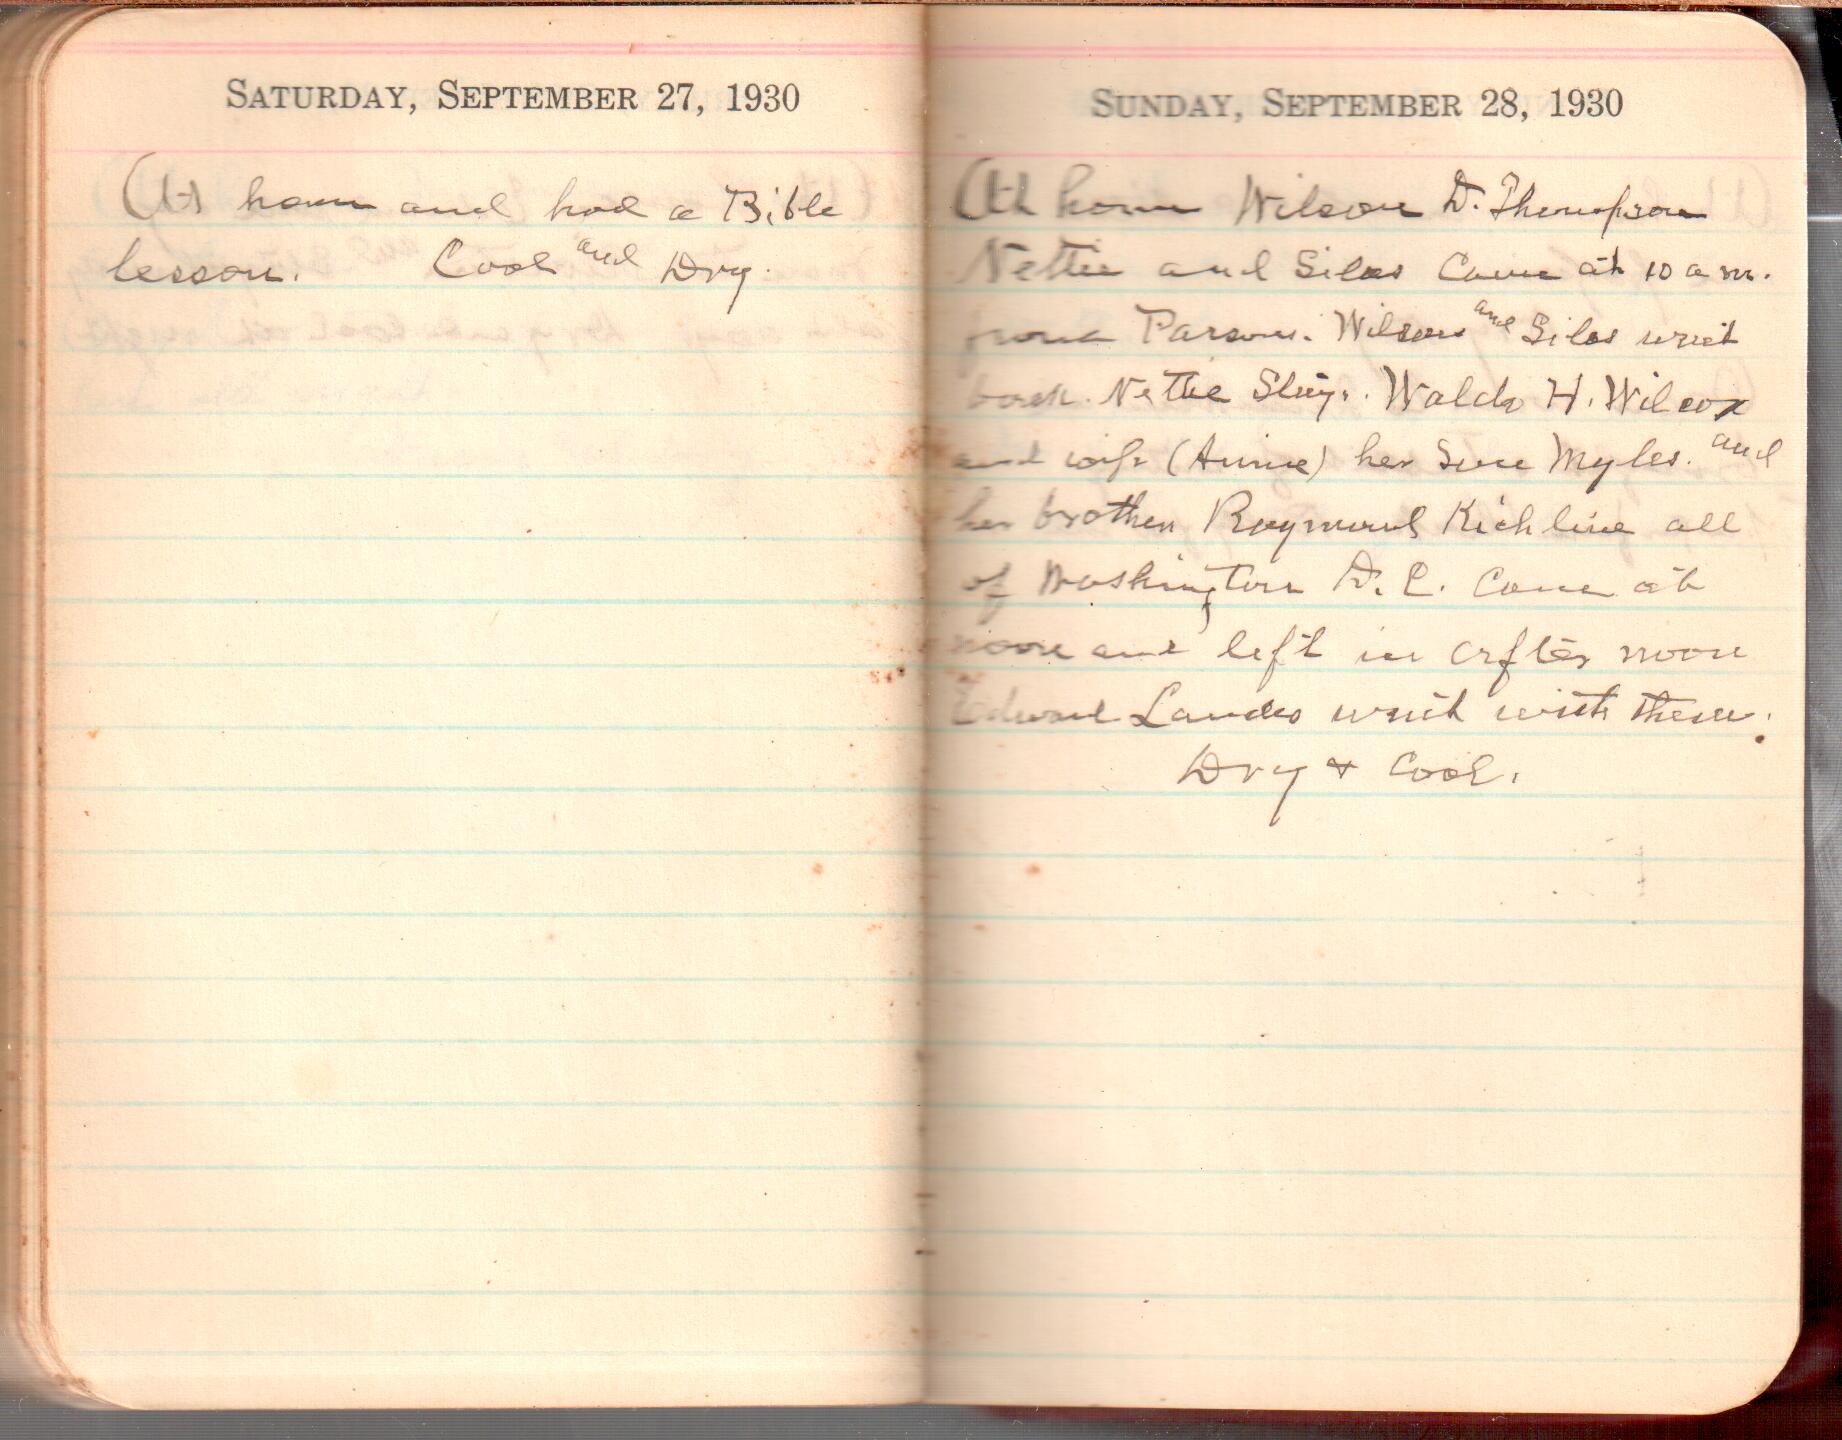 SATURDAY, SEPTEMBER 27, 1930
At home and had a Bible
lesson. Cool and Dry.
SUNDAY, SEPTEMBER 28, 1930
At home Wilson D. Thompson
Nettie and Silas Came at 10 a m.
from Parsons. Wilson and Silas went
back. Nettie Stay. Waldo H. Wilcox
and wife (Annie) her Son Myles. and
her brother Raymond Kichline all
of Washington D. C. Came at
noon and left in after noon
Edward Landes went with them.
Dry + Cool.